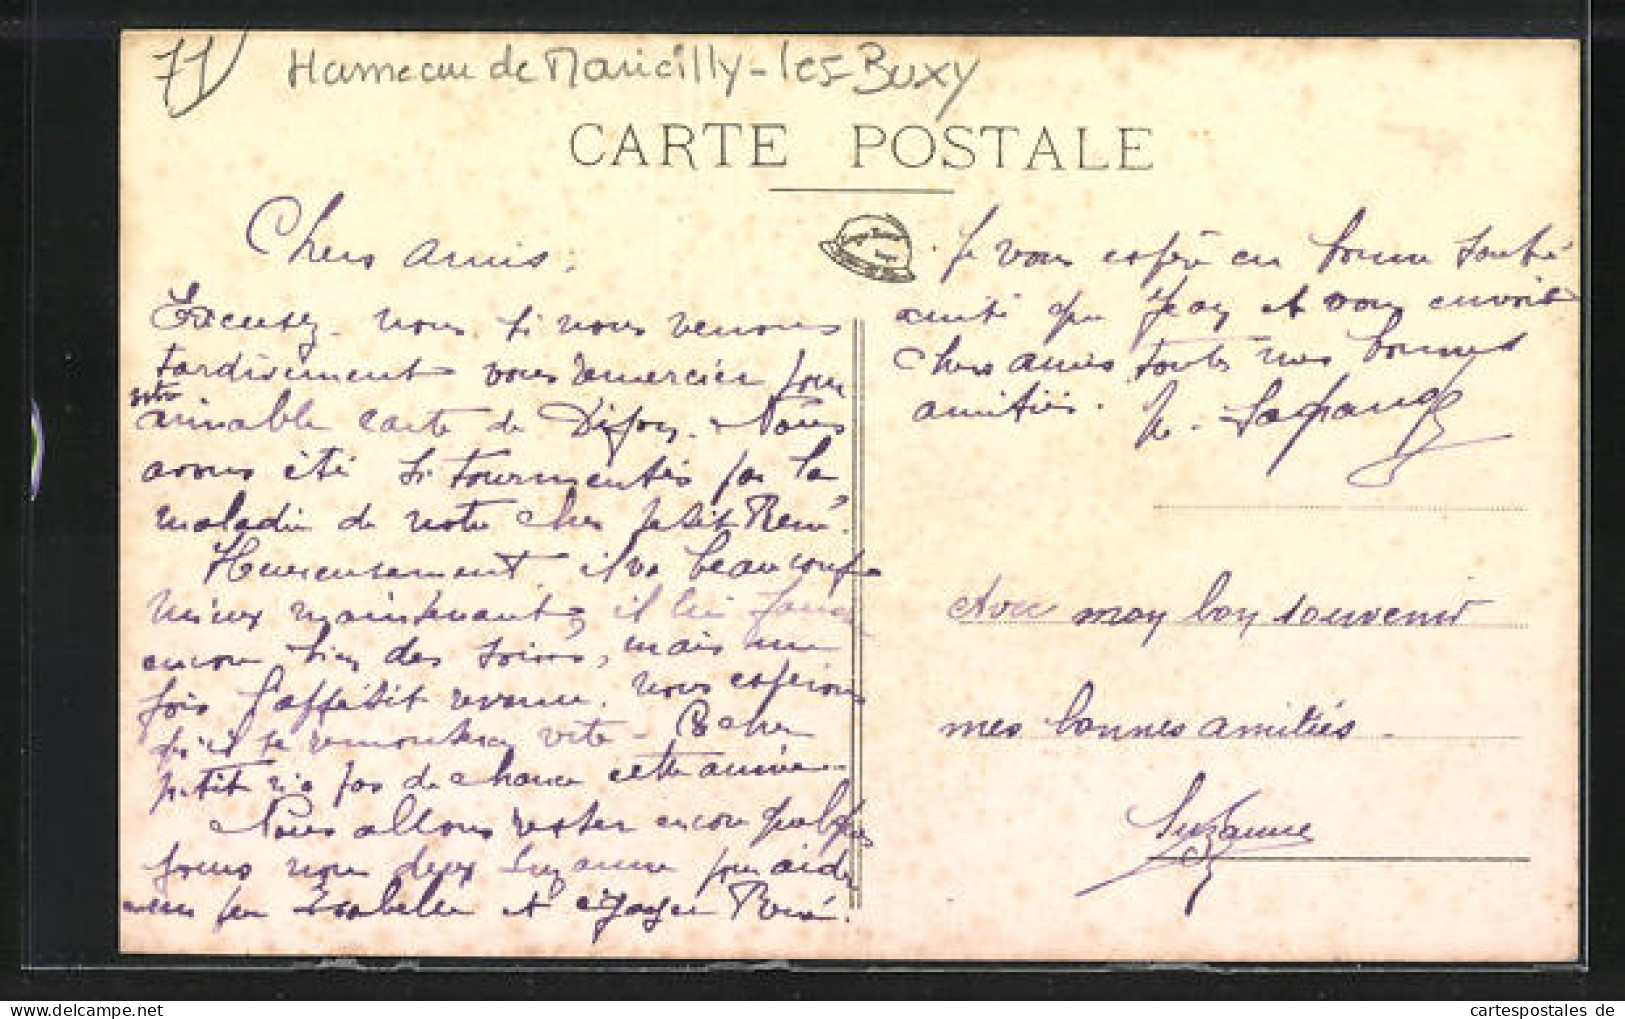 71 Hameau de Maricilly-les-Buxy
CARTE POSTALE
Chers amis,
Excusez-nous si nous venons
tardivement vous remercier pour
votre
aimable carte de Dijon. Nous
avons été si tourmentés par la
maladie de notre cher petit René.
Heureusement il va beaucoup
mieux maintenant, il lui faudra
encore bien des soins, mais une
fois l'appétit revenu, nous espérons
qu'il se remontera vite - Ce cher
petit n'a pas de chance cette année.
Nous allons rester encore quelques
jours nous deux Suzanne pour aider
un peu Isabelle et égayer René.
Je vous espère en bonne santé
ainsi que et vous envoie
chers amis toutes mes bonnes
amitiés. Lagrange
Avec mon bon souvenir
mes bonnes amitiés -
Suzanne
cartespostales de